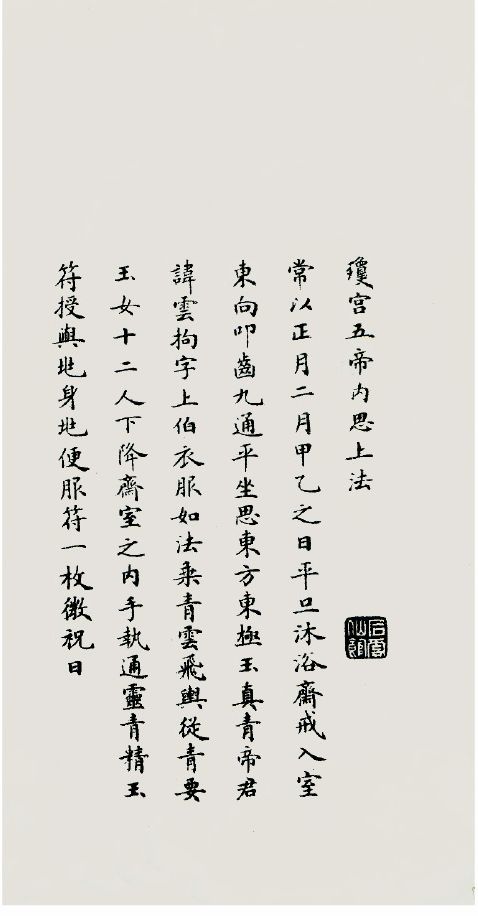 瓊宫五帝内思上法
常以正月二月甲乙之日平旦沐浴齋戒入室
東向叩齒九通平坐思東方東極玉真青帝君
諱雲拘字上伯衣服如法乗青雲飛輿從青要
玉女十二人下降齋室之内手執通靈青精玉
符授與地身地便服符一枚徽祝曰